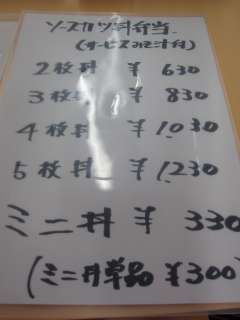 ソースカツ丼弁当
(サービスみそ汁付)
2枚丼 ¥ 630
3枚丼 ¥ 830
4枚丼 ¥1,030
5枚丼 ¥1,230
ミニ丼 ¥ 330
(ミニ丼単品 ¥300)